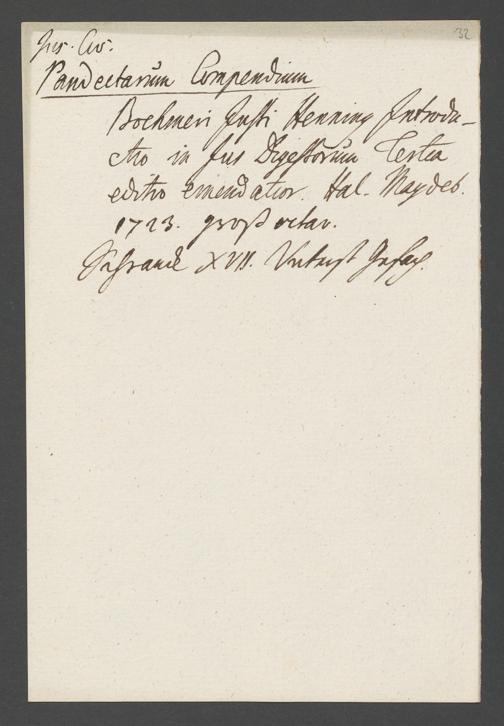 32
Jus. Civ.
Pandectarum Compendium
Boehmeri Justi Henning Introdu-
ctio in Jus Digestorum Tertia
editio emendatior. Hal. Magdeb.
1723. groß octav.
Schranck XVII. Unterst Gefach.